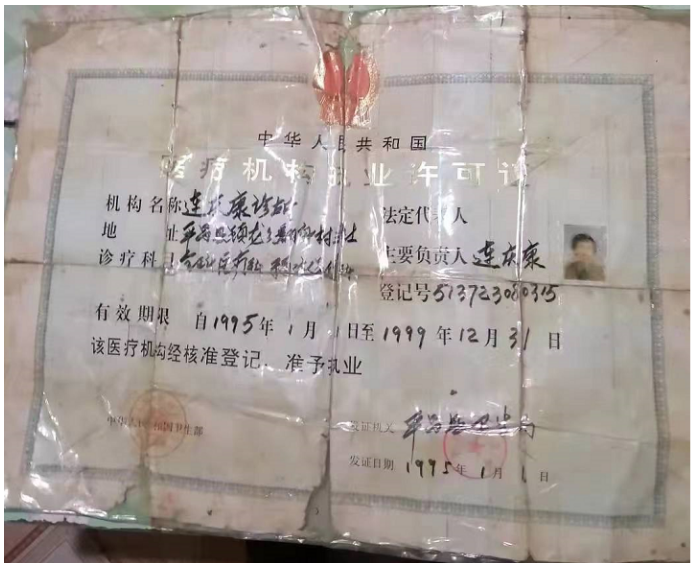 中华人民共和国
医疗机构执业许可证
机构名称 连庆康诊所
地 址 平昌县
诊疗科目
法定代表人
主要负责人 连庆康
登记号 513723080315
有效期限 自1995年1月1日至1999年12月31日
该医疗机构经核准登记，准予执业
中华人民共和国卫生部
发证机关 平昌县卫生局
发证日期 1995年1月1日